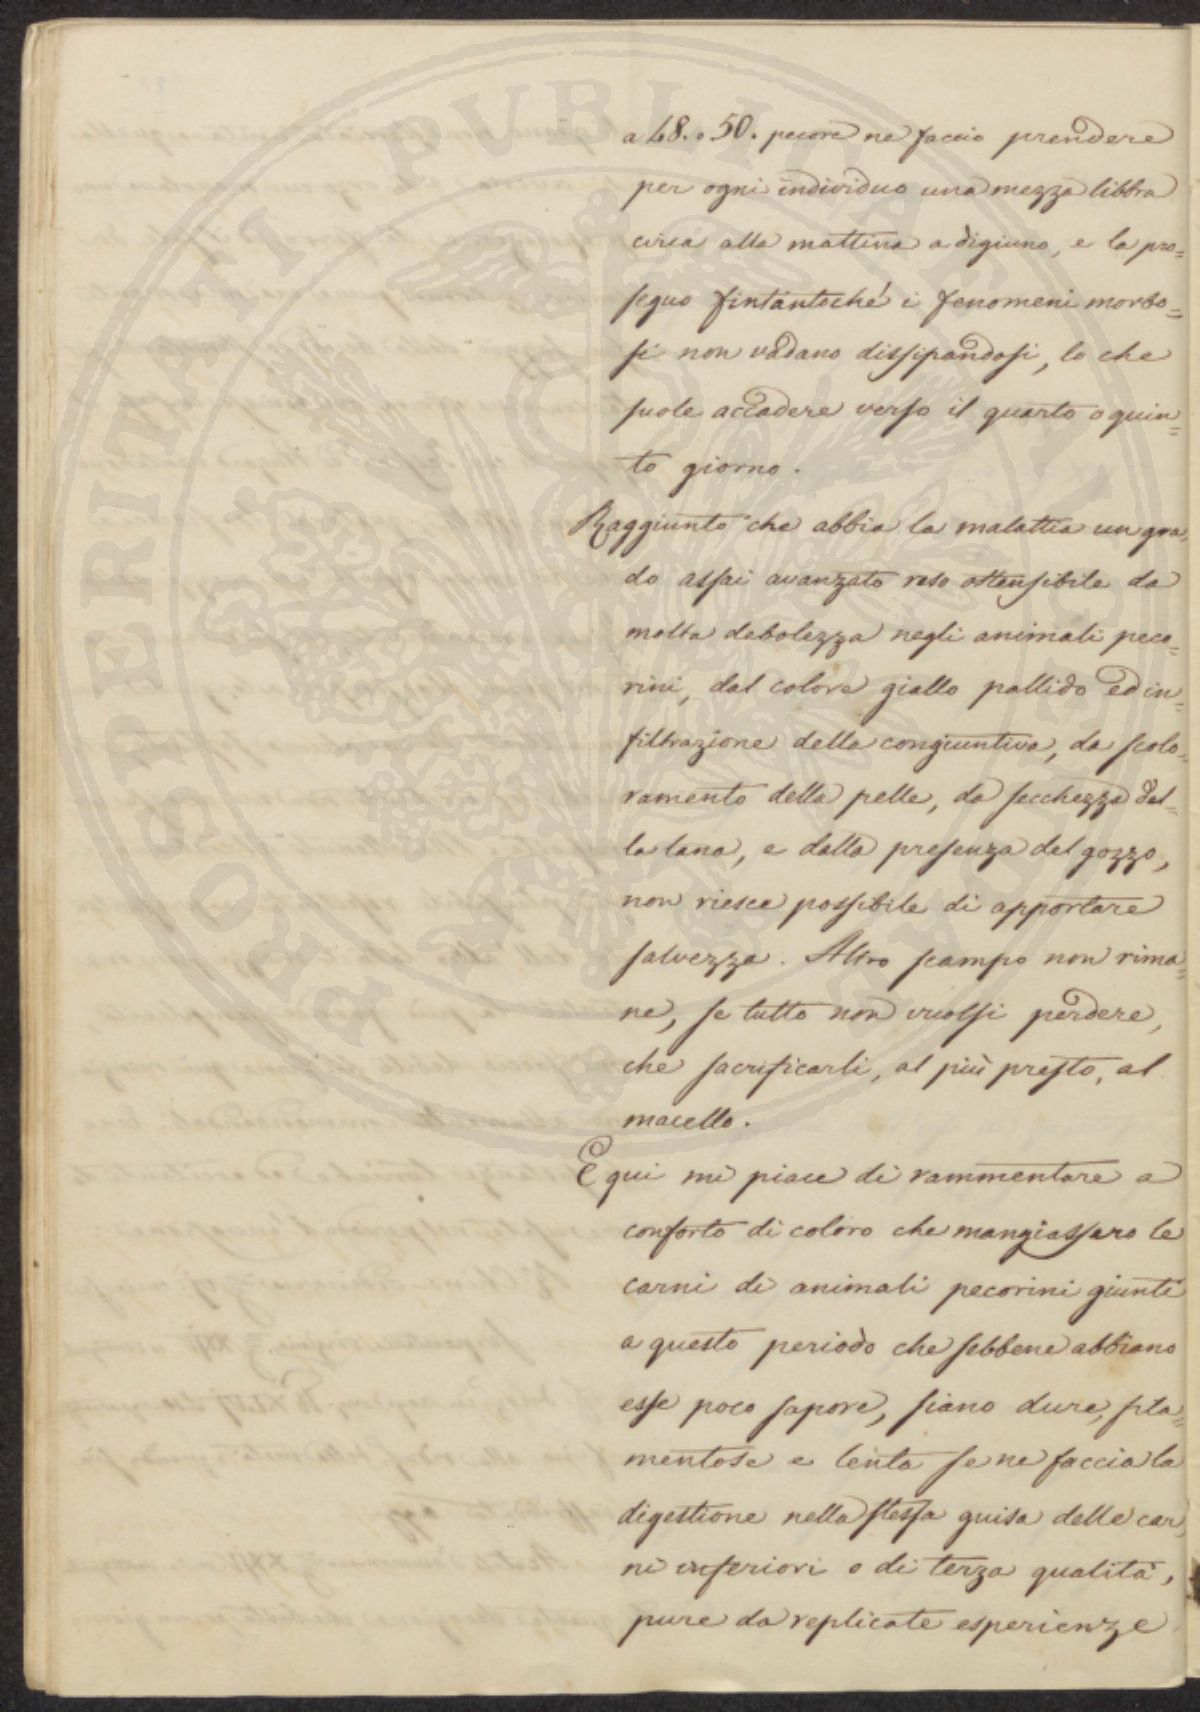 a 48. o 50. pecore ne faccio prendere
per ogni individuo una mezza libbra
circa alla mattina a digiuno, e la pro=
seguo fintantoché i fenomeni morbo=
si non vadano dissipandosi, lo che
suole accadere verso il quarto o quin=
to giorno.
Raggiunto che abbia la malattia un gra=
do assai avanzato reso ostensibile da
molta debolezza negli animali peco=
rini, dal colore giallo pallido ed in=
filtrazione della congiuntiva, da scolo=
ramento della pelle, da secchezza del=
la lana, e dalla presenza del gozzo,
non riesce possibile di apportare
salvezza. Altro scampo non rima=
ne, se tutto non vuolsi perdere,
che sacrificarli, al più presto, al
macello.
E qui mi piace di rammentare a
conforto di coloro che mangiassero le
carni di animali pecorini giunti
a questo periodo che sebbene abbiano
esse poco sapore, siano dure, fila=
mentose e lenta se ne faccia la
digestione nella stessa guisa delle car=
ni inferiori o di terza qualità,
pure da replicate esperienze
PROSPERITATI PUBLICAE